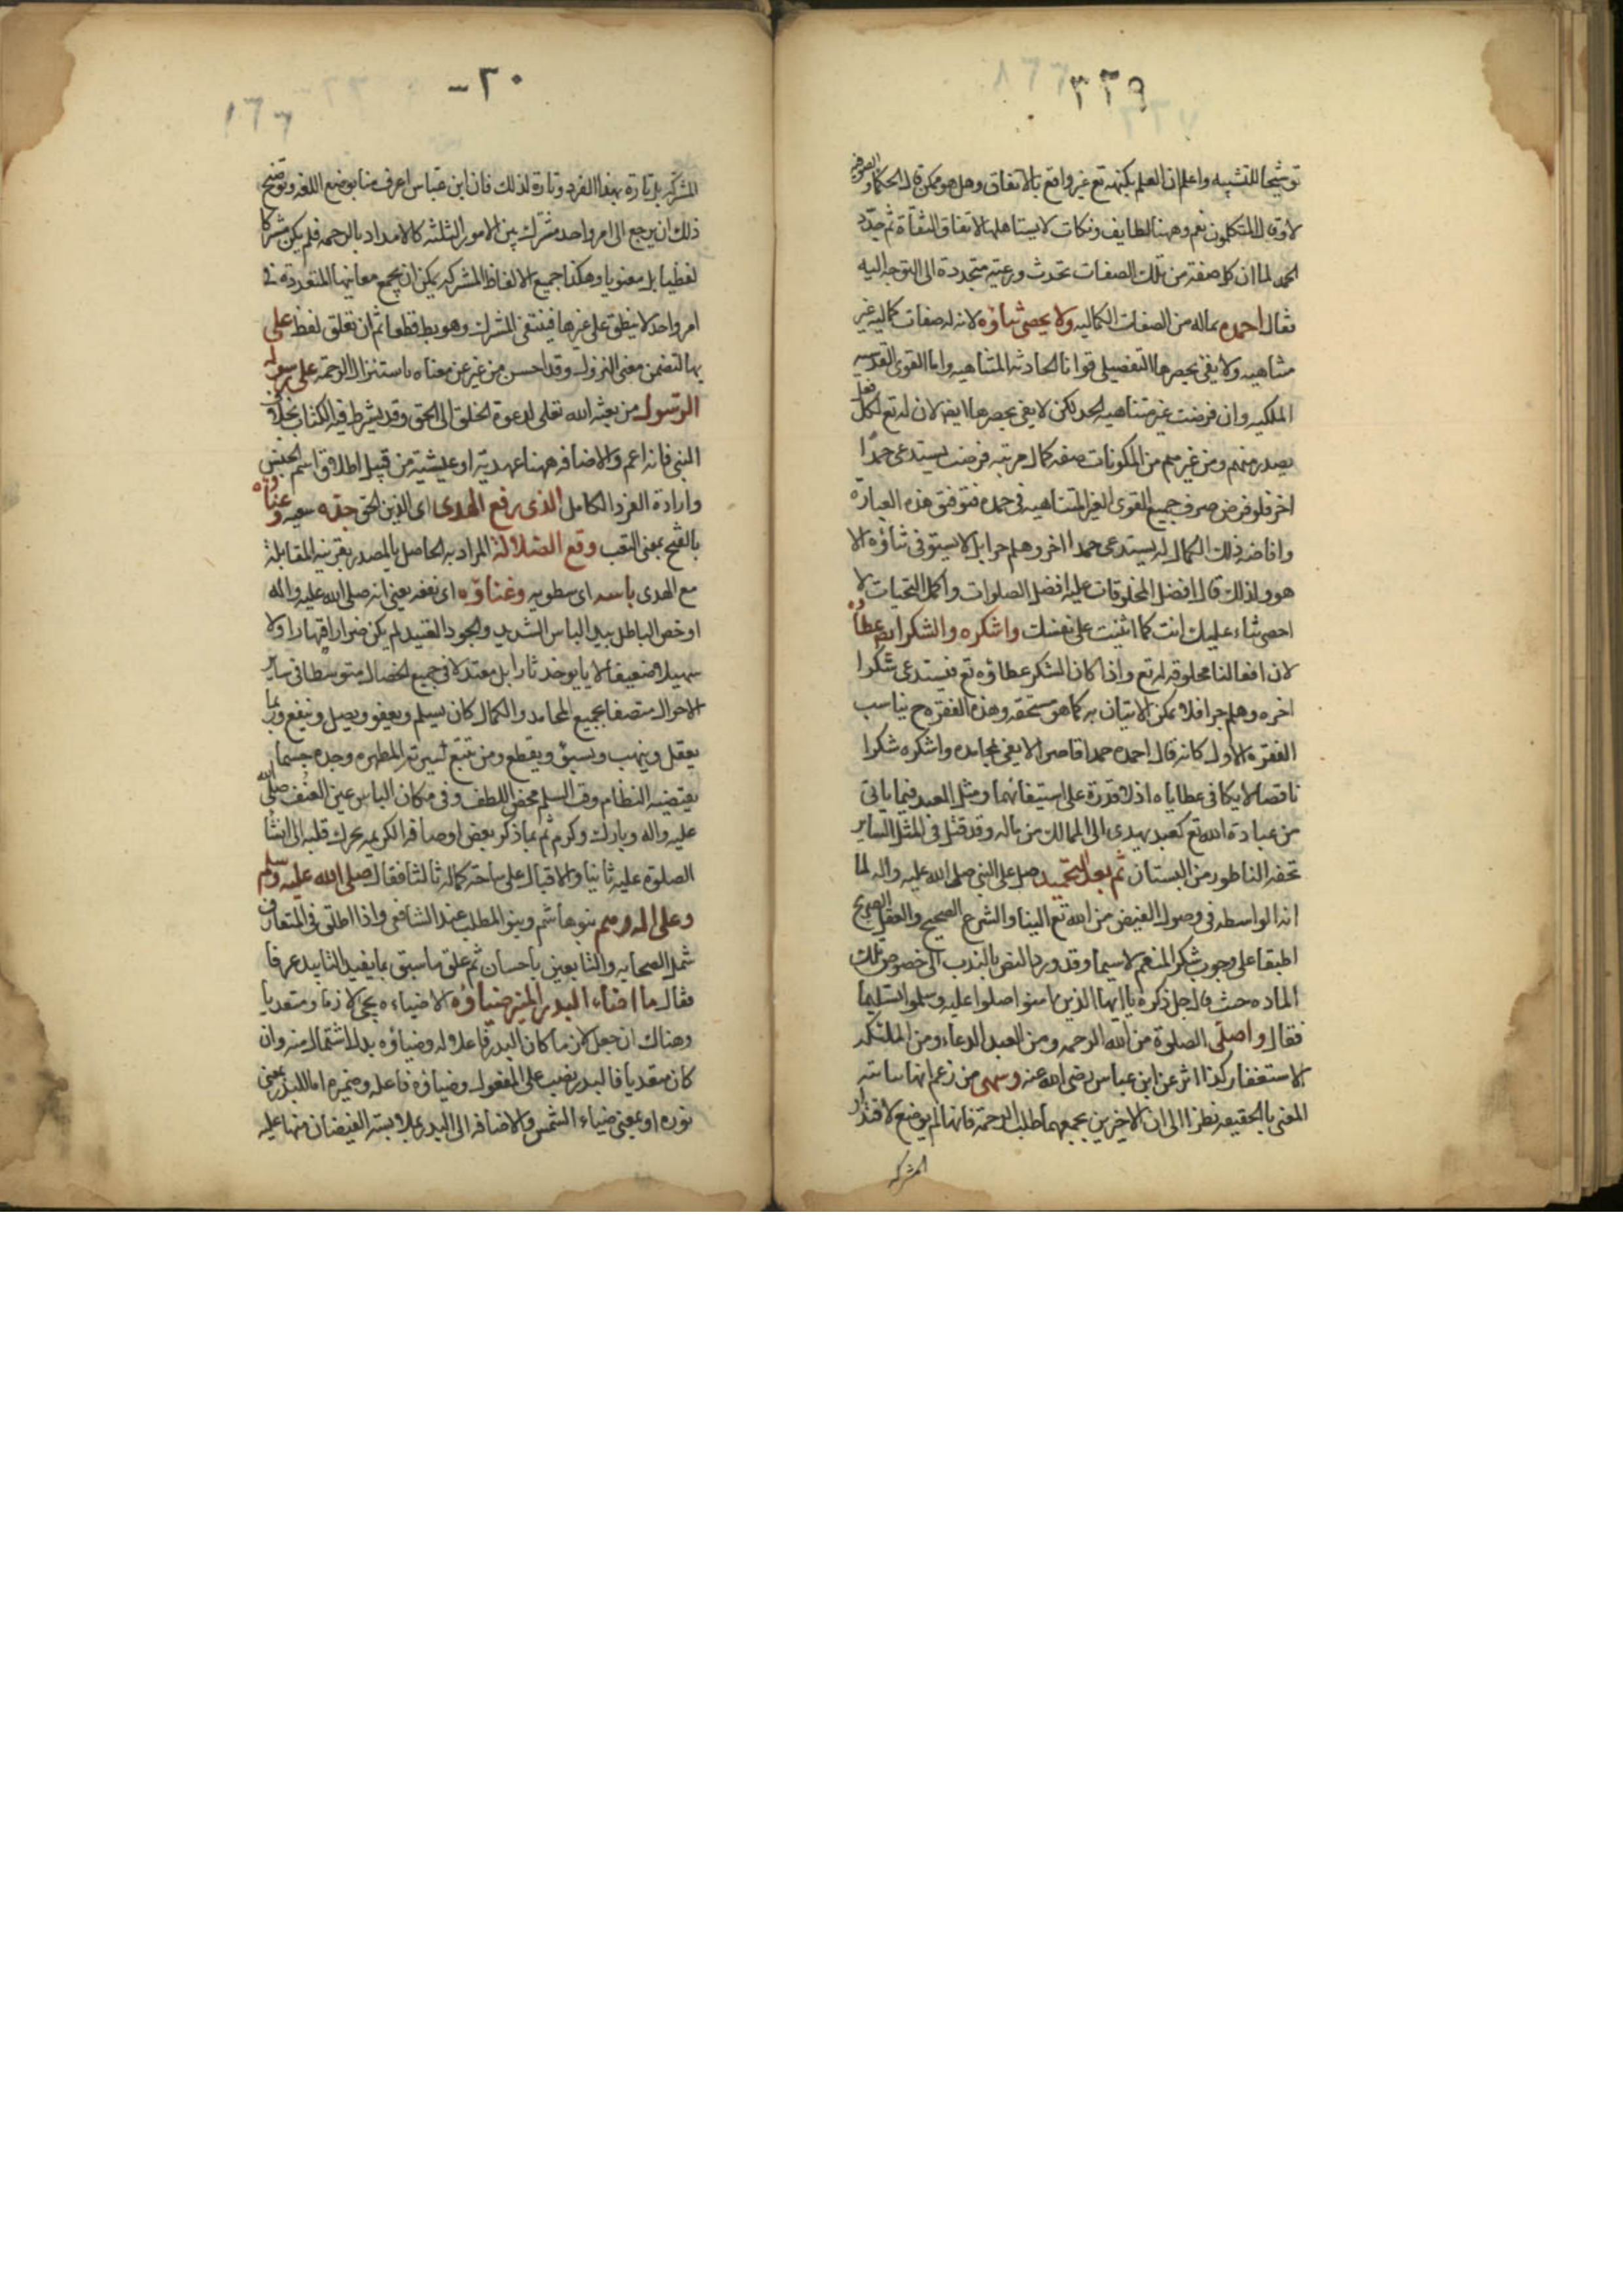 ٣٢٩
توشيحا للتشبيه واعلم ان العلم بكنهه تع غير واقع بالاتفاق وهل هو ممكن قال الحكماء والصوفيه
لا وقال المتكلمون نعم وههنا لطايف ونكات لا يستاهلها الاتفاق الثقاة ثم جدد
الحمد لما ان كل صفة من تلك الصفات تحدث ورغبته متجددة الى التوجه اليه
فقال احمده بماله من الصفات الكماليه ولا يحصى ثناؤه لانه له صفات كماليه غير
متناهيه ولا يفى بحصرها التفصيلى قوانا الحادثه المتناهيه واما القوى القدسيه
الملكيه وان فرضت غير متناهيه الحد لكن لا يفى بحصرها ايض لان له تع لكل فعل
يصدر منهم ومن غيرهم من المكونات صفه كمال مرتبه فرضت يستدعى حمدا
اخر فلو فرض صرف جميع القوى الغير المتناهيه فى حمده فتوفق هذه العبارة
وافاضه ذلك الكمال له يستدعى حمدا اخر وهلم جرا بل لا يستوفى ثناؤه الا
هو ولذلك قال افضل المخلوقات عليه افضل الصلوات واكمل التحيات لا
احصى ثناء عليك انت كما اثنيت على نفسك واشكره والشكر ايض عطاؤه
لان افعالنا مخلوقه له تع واذا كان الشكر عطاؤه تع فيستدعى شكرا
اخره وهلم جرا فلا يمكن الاتيان به كما هو مستحقه وهذه الفقره ح يناسب
الفقره الاولى كانه قال احمده حمدا قاصرا لا يفى بمحامده واشكره شكرا
ناقصا لا يكافى عطاياه اذ لا قدرة على استيفائهما ومثل العبد فيما ياتى
من عبادة الله تع كعبد يهدى الى المالك من ماله وقد قيل فى المثل الساير
تحفه الناطور من البستان ثم بعد التحميد صلى على النبى صلى الله عليه واله لما
انه الواسطه فى وصول الفيض من الله تع الينا والشرع الصحيح والعقل الصريح
اطبقا على وجوب شكر المنعم لا سيما وقد ورد النص بالندب الى خصوص تلك
الماده حيث قال جل ذكره يا ايها الذين امنوا صلوا عليه وسلموا تسليما
فقال واصلى الصلوة من الله الرحمه ومن العبد الدعاء ومن الملئكه
الاستغفار كذا اثر عن ابن عباس رضى الله عنه وسهى من زعم انها
المعنى بالحقيقه نظرا الى ان الاخيرين يجمعهما طلب الرحمة فانها لم يوضع لا قتدار
المشركه
٢٠-
١٦٦
المشركه بل تارة بهذا الفرد وتارة لذلك فان ابن عباس اعرف منا بوضع اللغه وتوضيح
ذلك ان يرجع الى امر واحد مشترك بين الامور الثلثه كالامداد بالرحمه فلم يكن مشركا
لفظيا بل معنويا وهكذا جميع الالفاظ المشركه يمكن ان يجمع معانيها المتعدده فى
امر واحد لا ينطق على غيرها فينتفى المشرك وهو بط قطعا ثم ان تعلق لفظ على
بها لتضمن معنى النزول وقد احسن من غير عن معناه باستنزال الرحمة على رسوله
الرسول من بعثه الله تعلى لدعوة الخلق الى الحق وقد يشرط فيه الكتاب بخلاف
النبى فانه اعم والاضافه ههنا عهديه او من قبيل اطلاق اسم الجنس
وارادة الفرد الكامل الذى رفع الهدى اى الدين الحق جده سعيه وعناؤه
بالفتح بمعنى التعب وقع الضلالة المراد به الحاصل بالمصدر بقرينه المقابلة
مع الهدى باسه اى سطوته وغناؤه اى نفعه يعنى انه صلى الله عليه واله
اوخص الباطل بيد الباس الشديد والجود القيد لم يكن ضرارا قهارا ولا
سهيلا ضعيفا لا يوخذ ثارا بل معتدلا فى جميع الخصال متوسطا فى ساير
الاحوال متصفا بجميع المحامد والكمال كان يسلم ويعفو ويصل وينفع وربما
يعقل وينهب ويسبى ويقطع ومن تتبع لسيرته المطهره وجده حسبما
يقتضيه النظام وقت السلم محض اللطف وفى مكان الباس عين العنف صلى الله
عليه واله وبارك وكرم ثم بما ذكر بعض اوصافه الكريمه تحرك قلبه الى انشا
الصلوة عليه ثانيا والاقبال على ساحة كماله ثالثا فقال صلى الله عليه وسلم
وعلى اله وهم بنوهاشم وبنو المطلب عند الشافعى واذا اطلق فى المتعارف
شمل الصحابه والتابعين باحسان ثم علق ما سبق بما يفيد التابيد عرفا
فقال ما اضاء البدر المنير ضياؤه الاضياءه يجئ لازما ومتعديا
وهناك ان جعل لازما كان البدر فاعلا له وضياؤه بدل الاشتمال منه وان
كان متعديا فالبدر نصب على المفعول وضياؤه فاعله وضميره اما للبدر بمعنى
نوره او بمعنى ضياء الشمس والاضافه الى البدر بملابسته الفيضان منها عليه